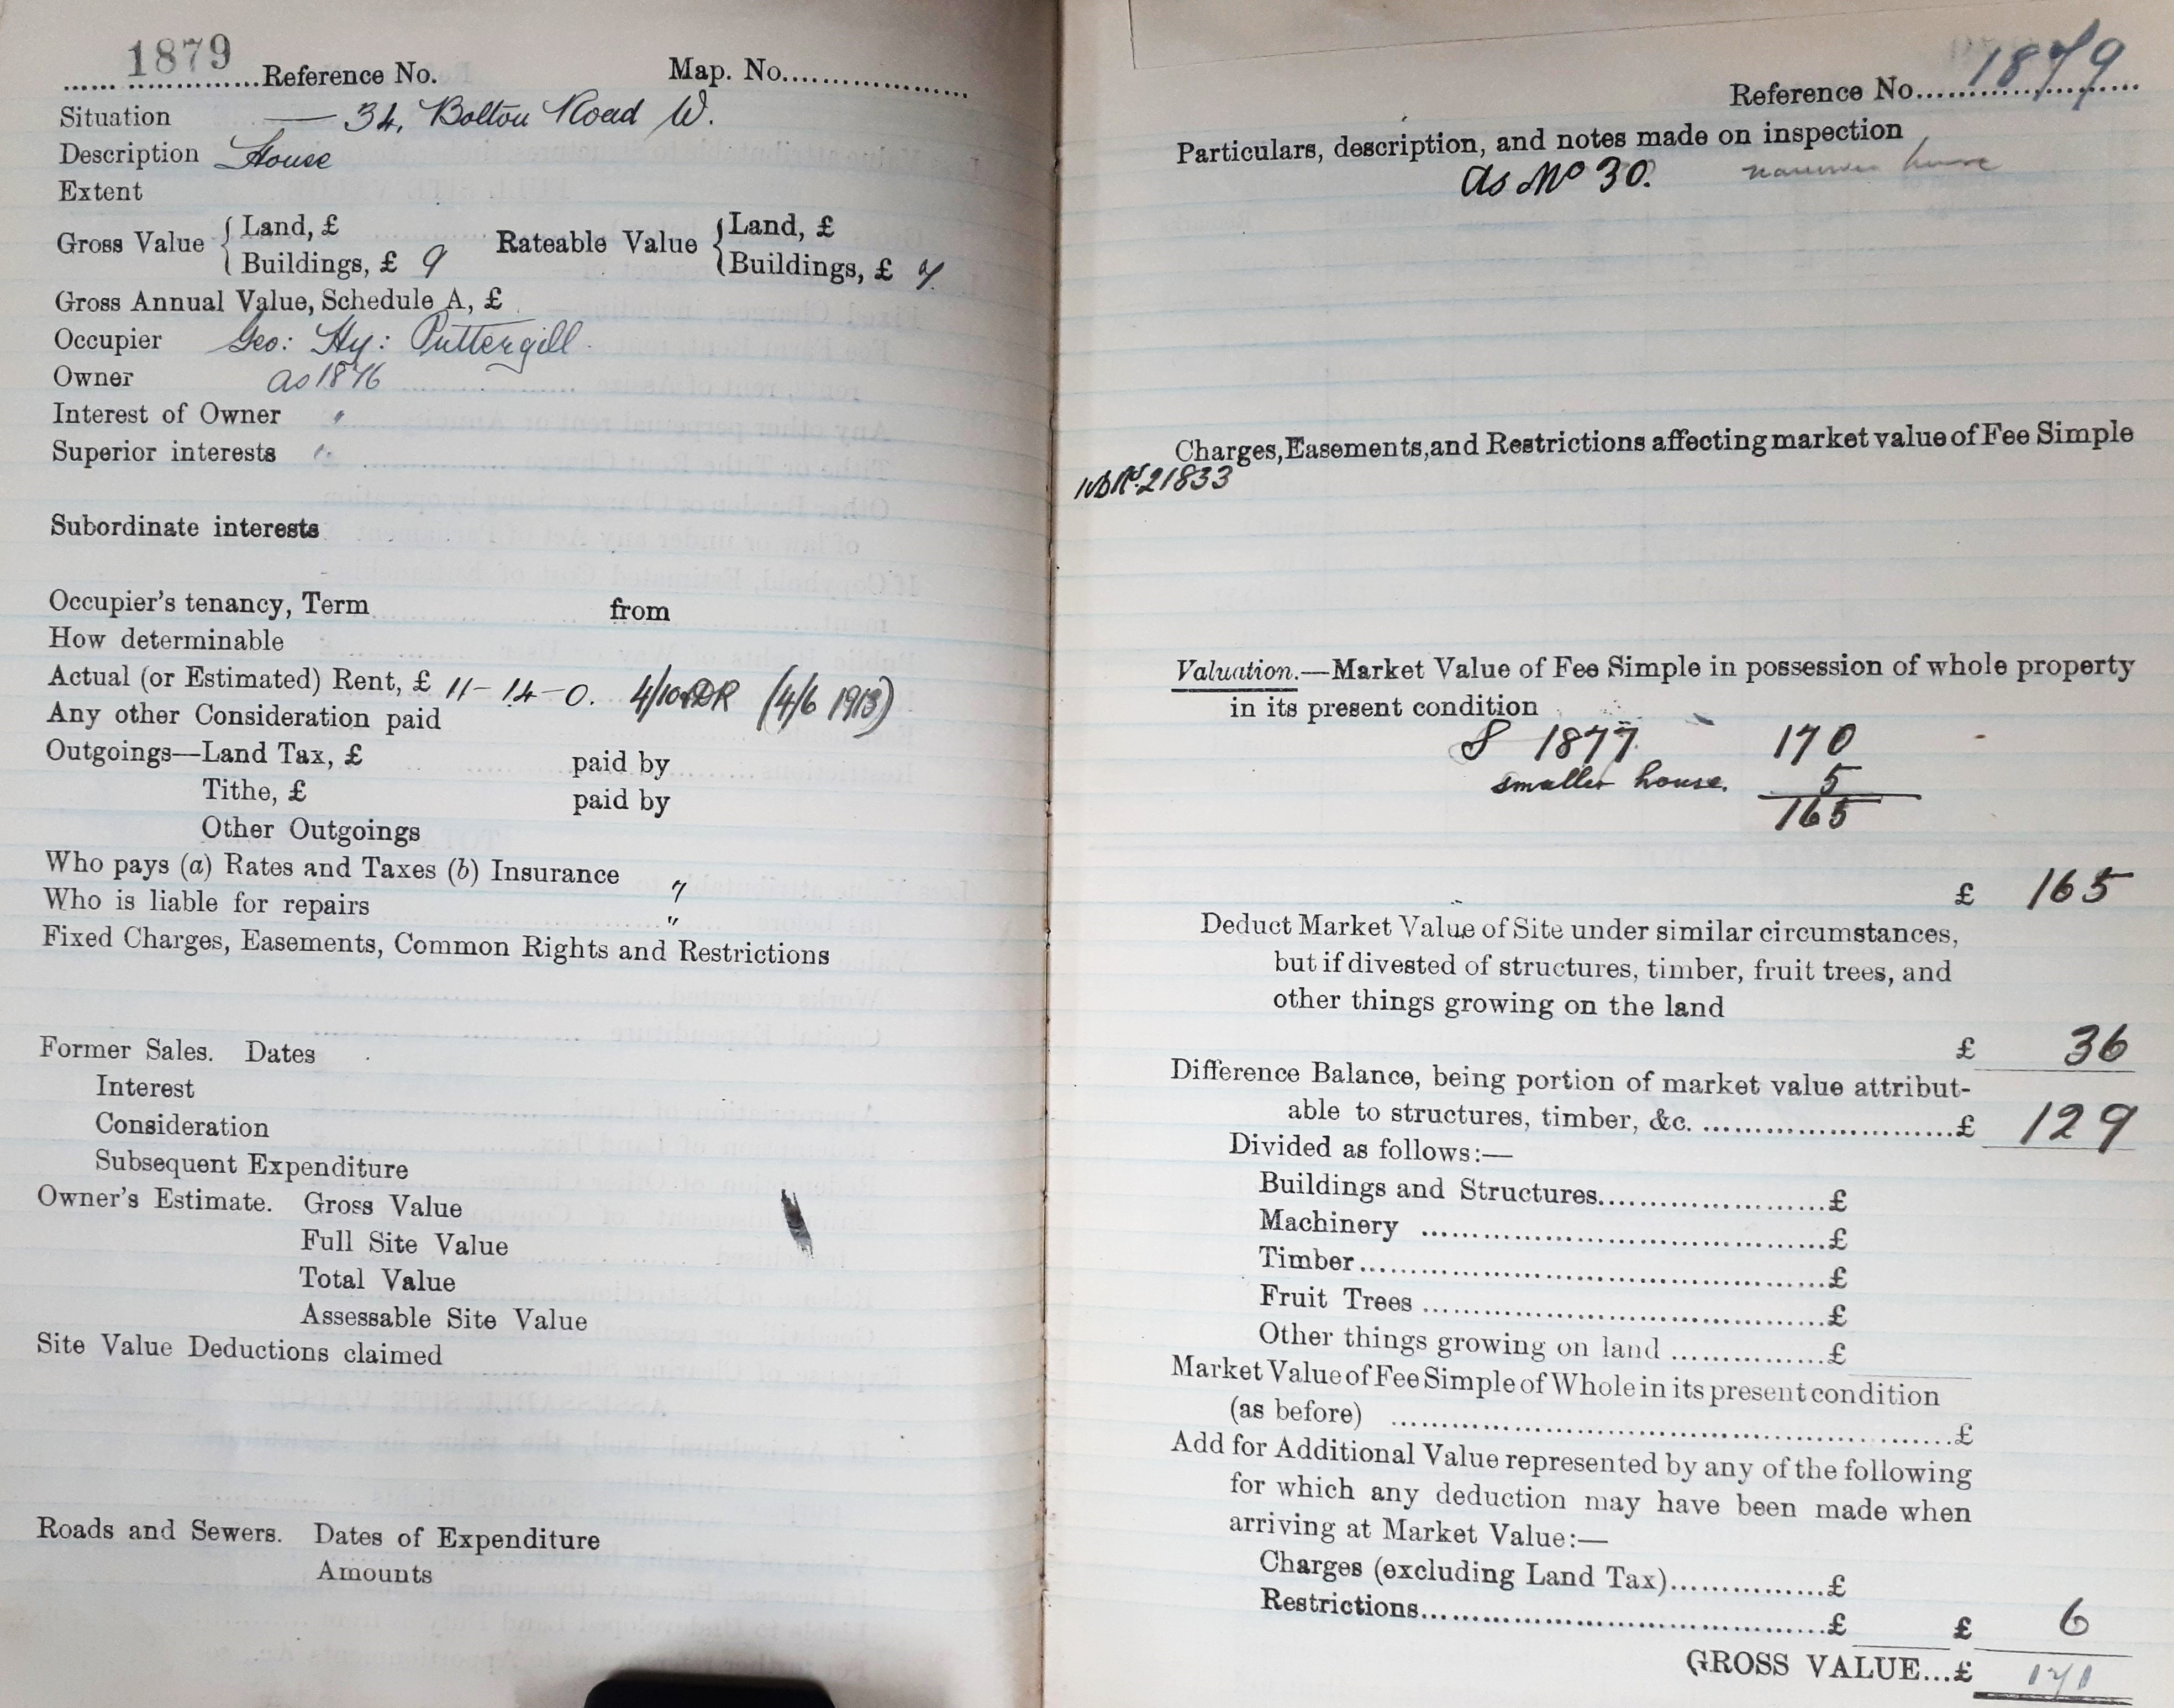 1879 Reference No. Map. No.
Situation — 34, Bolton Road W.
Description House
Extent
Gross Value { Land, £ Rateable Value { Land, £
Buildings, £ 9 Buildings, £ 7
Gross Annual Value, Schedule A, £
Occupier Geo: Hy: Puttergill
Owner as 1876
Interest of Owner "
Superior interests "
Subordinate interests
Occupier's tenancy, Term from
How determinable
Actual (or Estimated) Rent, £ 11-14-0. 4/10 (4/6 1913)
Any other Consideration paid
Outgoings—Land Tax, £ paid by
Tithe, £ paid by
Other Outgoings
Who pays (a) Rates and Taxes (b) Insurance "
Who is liable for repairs "
Fixed Charges, Easements, Common Rights and Restrictions
Former Sales. Dates
Interest
Consideration
Subsequent Expenditure
Owner's Estimate. Gross Value
Full Site Value
Total Value
Assessable Site Value
Site Value Deductions claimed
Roads and Sewers. Dates of Expenditure
Amounts
Reference No. 1879
Particulars, description, and notes made on inspection
as No 30. narrower house
Charges, Easements, and Restrictions affecting market value of Fee Simple
21833
Valuation.—Market Value of Fee Simple in possession of whole property
in its present condition
1877 170
smaller house. 5
165
£ 165
Deduct Market Value of Site under similar circumstances,
but if divested of structures, timber, fruit trees, and
other things growing on the land
£ 36
Difference Balance, being portion of market value attribut-
able to structures, timber, &c. £ 129
Divided as follows:—
Buildings and Structures £
Machinery £
Timber £
Fruit Trees £
Other things growing on land £
Market Value of Fee Simple of Whole in its present condition
(as before) £
Add for Additional Value represented by any of the following
for which any deduction may have been made when
arriving at Market Value:—
Charges (excluding Land Tax) £
Restrictions £ £ 6
GROSS VALUE...£ 171